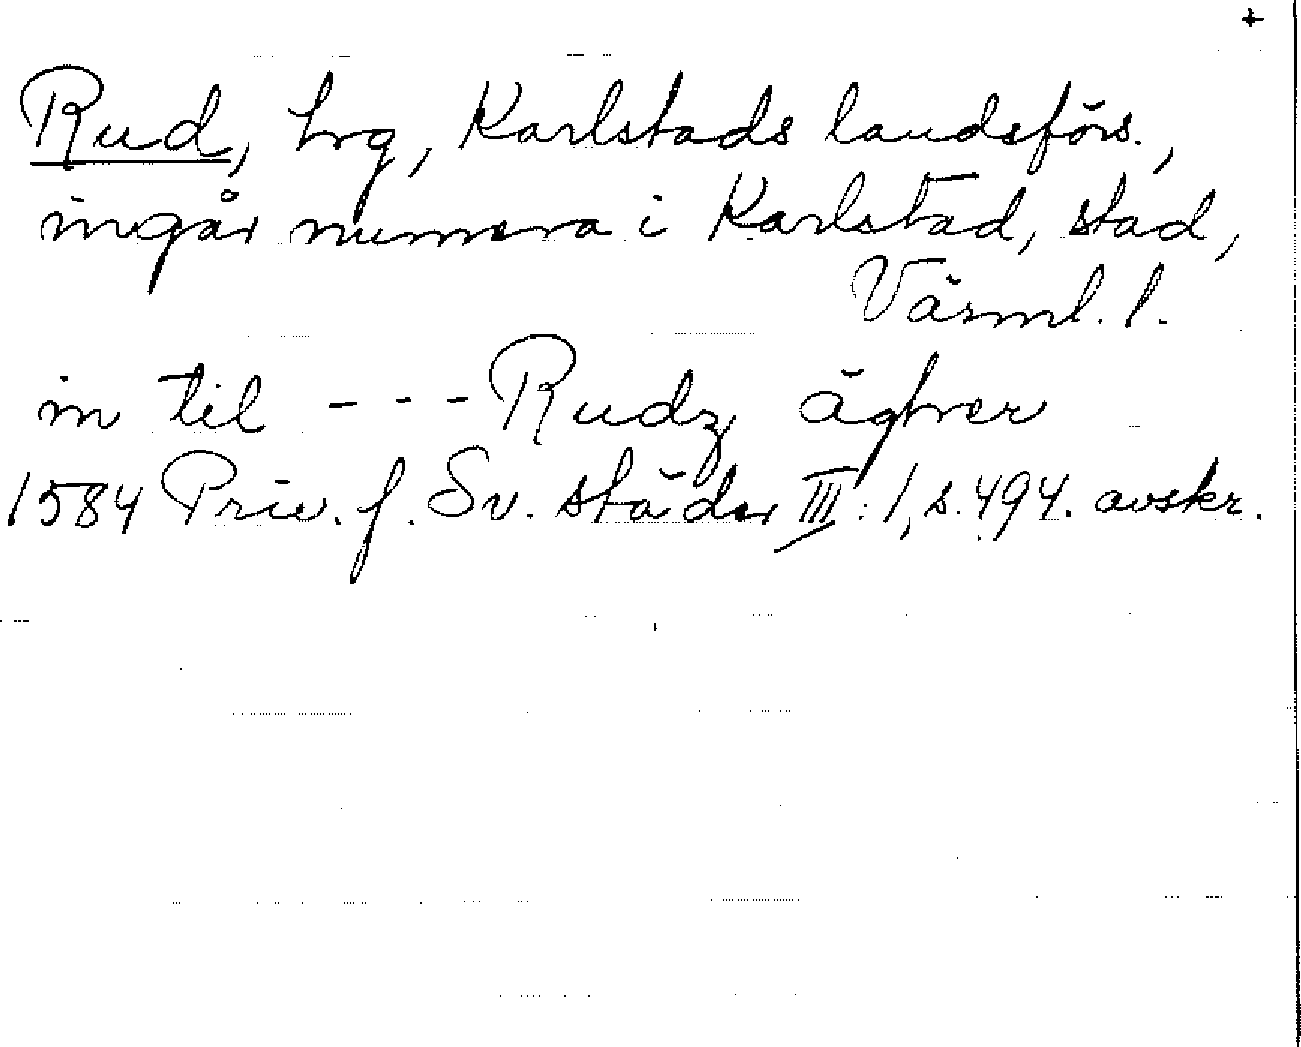 +
Rud, hrg, Karlstads landsförs.,
ingår numera i Karlstad, stad,
Värml. l.
in til --- Rudz ägher
1584 Priv. f. Sv. städer III: 1, s. 494. avskr.